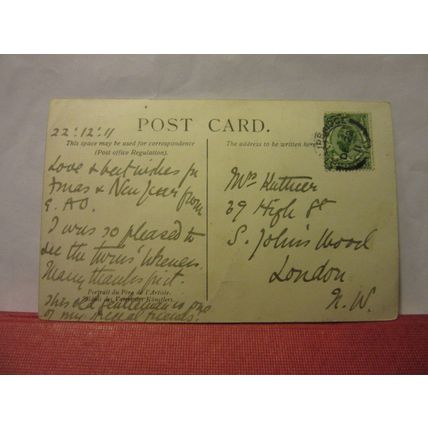 22.12.11
POST CARD.
This space may be used for correspondence
(Post office Regulation).
The address to be written here
Love & best wishes for
Xmas & New Year from
E. AO.
I was so pleased to
see the twins
Many thanks for it.
Portrait du Père de l'Artiste.
This old gentleman is one
of my special friends.
Mrs Kuttner
39 High St
S. John's Wood
London
N.W.